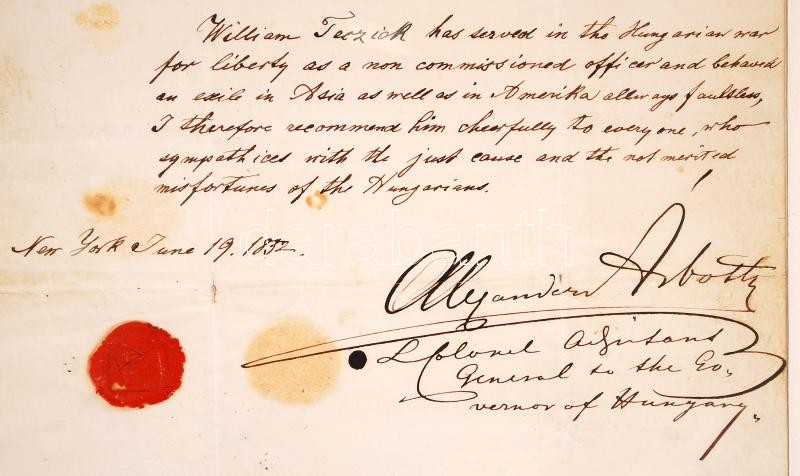 William Teczick has served in the Hungarian war
for liberty as a non commissioned officer and behaved
an exile in Asia as well as in Amerika allways faultless,
I therefore recommend him cheerfully to everyone, who
sympathices with the just cause and the not merited
misfortunes of the Hungarians.
New York June 19. 1852.
darabanth
Alexander Asboth
L Colonel Adjutant
General to the Go-
vernor of Hungary.